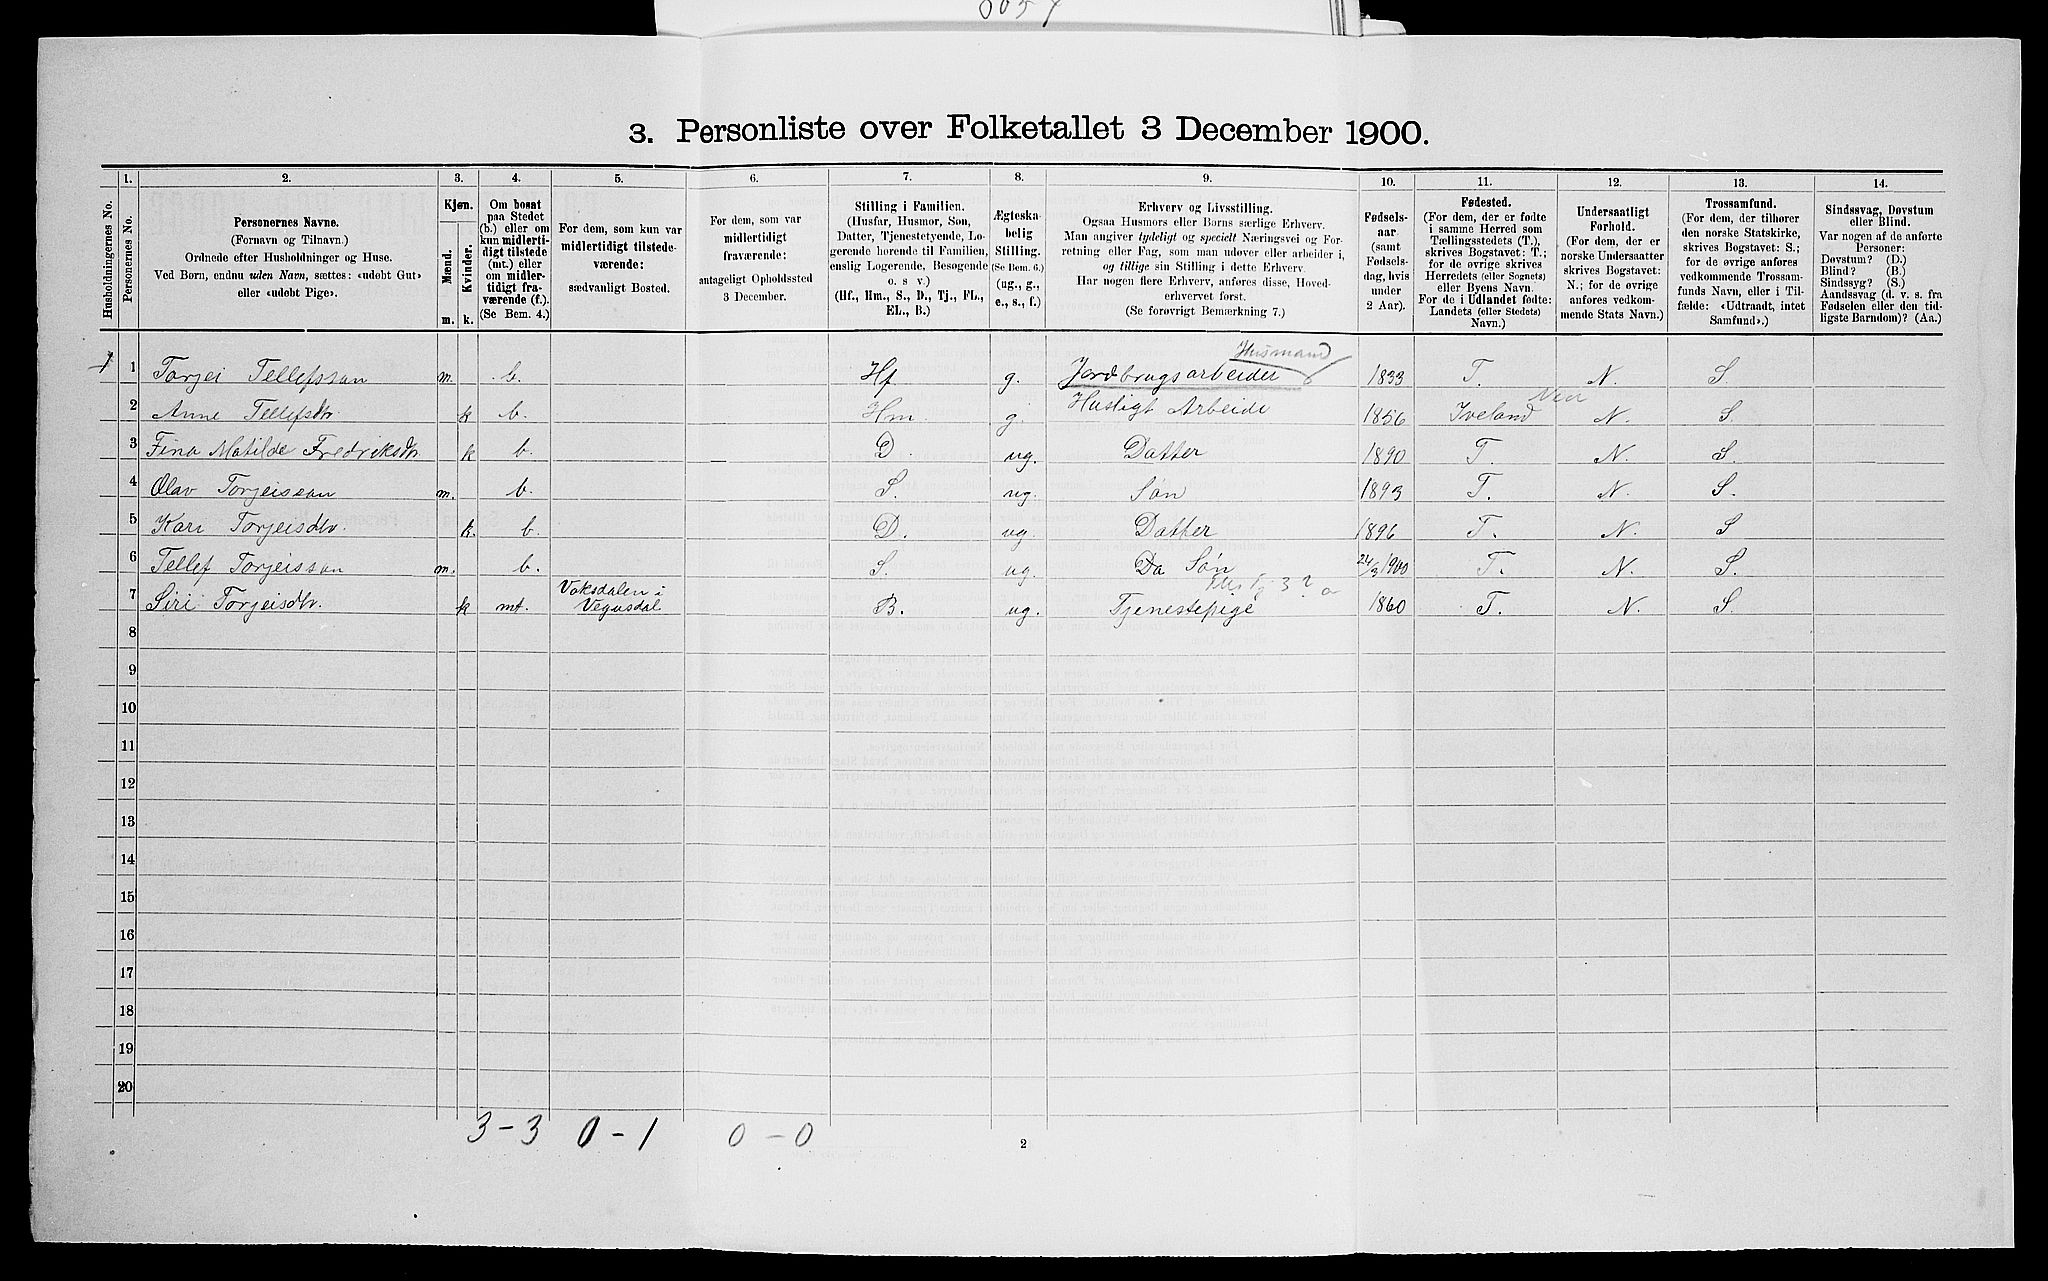 3. Personliste over Folketallet 3 December 1900.
Husholdningernes No.
1.
Personernes No.
2.
Personernes Navne.
(Fornavn og Tilnavn.)
Ordnede efter Husholdninger og Huse.
Ved Børn, endnu uden Navn, sættes: «udøbt Gut»
eller «udøbt Pige».
3.
Kjøn.
Mænd.
Kvinder.
m. k.
4.
Om bosat
paa Stedet
(b.) eller om
kun midlerti-
digt tilstede
(mt.) eller
om midler-
tidigt fra-
værende (f.).
(Se Bem. 4.)
5.
For dem, som kun var
midlertidigt tilstede-
værende:
sædvanligt Bosted.
6.
For dem, som var
midlertidigt
fraværende:
antageligt Opholdssted
3 December.
7.
Stilling i Familien.
(Husfar, Husmor, Søn,
Datter, Tjenestetyende, Lo-
gerende hørende til Familien,
enslig Logerende, Besøgende
o. s v.)
(Hf., Hm., S., D., Tj., FL.,
EL., B.)
8.
Ægteska-
belig
Stilling.
(Se Bem. 6.)
(ug., g.,
e., s., f.)
9.
Erhverv og Livsstilling.
Ogsaa Husmors eller Børns særlige Erhverv.
Man angiver tydeligt og specielt Næringsvei og For-
retning eller Fag, som man udøver eller arbeider i,
og tillige sin Stilling i dette Erhverv.
Har nogen flere Erhverv, anføres disse, Hoved-
erhvervet først.
(Se forøvrigt Bemærkning 7.)
10.
Fødsels-
aar
(samt
Fødsels-
dag, hvis
under
2 Aar).
11.
Fødested.
(For dem, der er fødte
i samme Herred som
Tællingsstedets (T.),
skrives Bogstavet: T.;
for de øvrige skrives
Herredets (eller Sognets)
eller Byens Navn.
For de i Udlandet fødte:
Landets (eller Stedets)
Navn.)
12.
Undersaatligt
Forhold.
(For dem, der er
norske Undersaatter
skrives Bogstavet:
N.; for de øvrige
anføres vedkom-
mende Stats Navn.)
13.
Trossamfund.
(For dem, der tilhører
den norske Statskirke,
skrives Bogstavet: S.;
for de øvrige anføres
vedkommende Trossam-
funds Navn, eller i Til-
fælde: «Udtraadt, intet
Samfund».)
14.
Sindssvag, Døvstum
eller Blind.
Var nogen af de anførte
Personer:
Døvstum? (D.)
Blind? (B.)
Sindssyg? (S.)
Aandssvag (d. v. s. fra
Fødselen eller den tid-
ligste Barndom)? (Aa.)
Husmand
1 1 Torjei Tellefsson m. b. Hf g. Jordbrugsarbeider 1833 T. N. S.
2 Anne Tellefsdtr. k b. Hm g. Husligt Arbeide 1856 Iveland Ned N. S.
3 Fina Matilde Fredriksdtr k b. — D. ug. Datter 1890 T. N. S.
4 Olav Torjeisson m. b. S. ug. Søn 1893 T. N. S.
5 Kari Torjeisdtr. k. b. D. ug. Datter 1896 T. N. S
6 Tellef Torjeisson m. b. S. ug. Da Søn 24/3 1900 T. N. S.
7 Siri Torjeisdtr. k mt. Vaksdalen i
Vegusdal B. ug. Tjenestepige 1860 T. N. S.
8
9
10
11
12
13
14
15
16
17
18
19
20
3-3 0-1 0-0
2